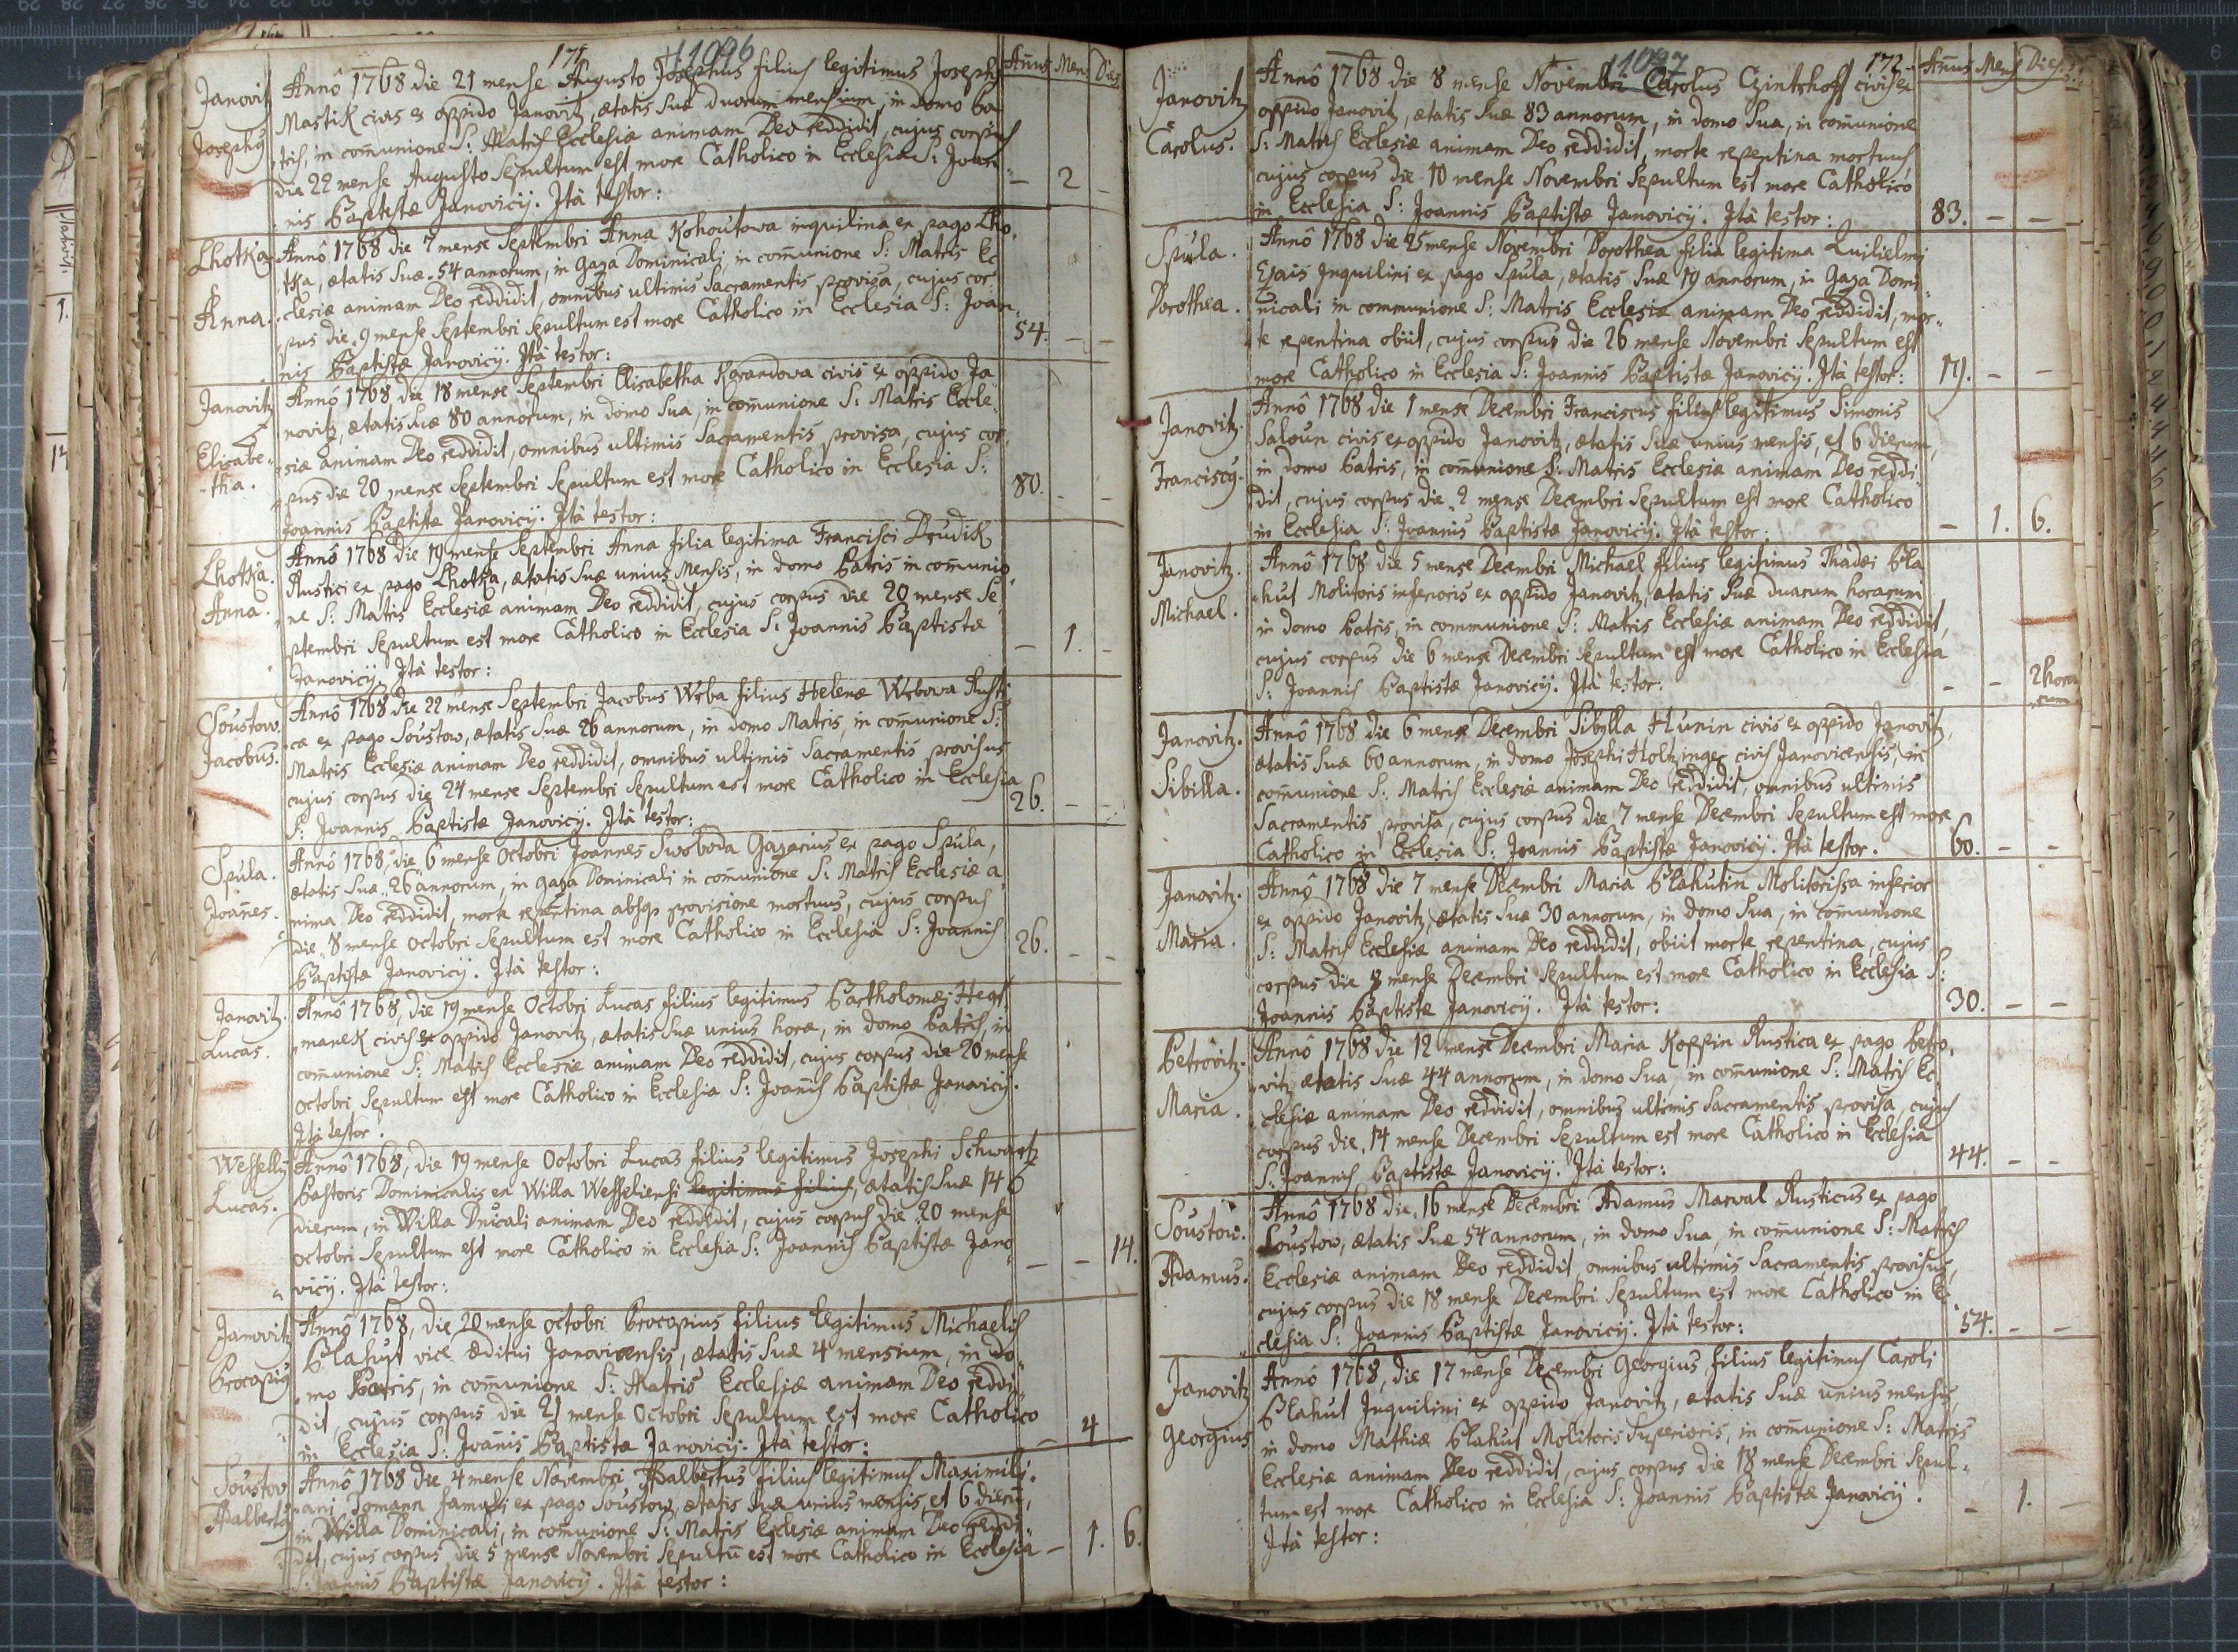 171
11096
Annus Mens Dies
Janovitz
Josephus
Annô 1768 die 21 mense Augusto Josephus filius legitimus Josephi
Mastik civis ex oppido Janovitz, ætatis Suæ duorum mensium, in domo Pa
tris, in com̄unione S: Matris Ecclesiæ animam Deo reddidit, cujus corpus
die 22 mense Augusto Sepultum est more Catholico in Ecclesia S: Joan
nis Baptistæ Janovicij. Ità testor:
– 2 –
Lhotka
Anna.
Annô 1768 die 7 mense Septembri Anna Kohoutowa inquilina ex pago Lho„
„tka, ætatis Suæ 54 annorum, in Gaza Dominicali, in com̄unione S: Matris Ec
clesiæ animam Deo reddidit, omnibus ultimis Sacramentis provisa, cujus cor
pus die 9 mense Septembri Sepultum est more Catholico in Ecclesia S: Joan„
nis Baptistæ Janovicij. Ità testor:
54. – –
Janovitz
Elisabe„
„tha.
Annô 1768 die 18 mense Septembri Elisabetha civis ex oppido Ja
novitz, ætatis Suæ 80 annorum, in domo Sua, in com̄unione S: Matris Eccle„
siæ animam Deo reddidit, omnibus ultimis Sacramentis provisa, cujus cor„
pus die 20 mense Septembri Sepultum est more Catholico in Ecclesia S:
Joannis Baptistæ Janovicij. Ità testor:
80. – –
Lhotka.
Anna.
Annô 1768 die 19 mense Septembri Anna filia legitima Francisci Drudik
Rustici ex pago Lhotka, ætatis Suæ unius Mensis, in domo Patris in communio„
ne S: Matris Ecclesiæ animam Deo reddidit, cujus corpus die 20 mense Se„
ptembri Sepultum est more Catholico in Ecclesia S: Joannis Baptistæ
Janovicij. Ità testor:
– 1. –
Soustow.
Jacobus.
Annô 1768 die 22 mense Septembri Jacobus Wrba filius Helenæ Wrbowa Rusti
cæ ex pago Soustow, ætatis Suæ 26 annorum, in domo Matris, in com̄unione S:
Matris Ecclesiæ animam Deo reddidit, omnibus ultimis Sacramentis provisus
cujus corpus die 24 mense Septembri Sepultum est more Catholico in Ecclesia
S: Joannis Baptistæ Janovicij. Ità testor:
26. – –
Spúla.
Joannes.
Annô 1768, die 6 mense Octobri Joannes Swoboda Gazarius ex pago Spúla,
ætatis Suæ 26 annorum, in gaza Dominicali in com̄unione S: Matris Ecclesiæ a
nima Deo reddidit, morte repentina absq; provisione mortuus, cujus corpus
die 8 mense Octobri Sepultum est more Catholico in Ecclesia S: Joannis
Baptistæ Janovicij. Ità testor:
26. – –
Janovitz.
Lucas.
Annô 1768, die 19 mense Octobri Lucas filius legitimus Bartholomæi Hegt
„manek civis ex oppido Janovitz, ætatis Suæ unius horæ, in domo Patris, in
com̄unione S: Matris Ecclesiæ animam Deo reddidit, cujus corpus die 20 mense
Octobri Sepultum est more Catholico in Ecclesia S: Joannis Baptistæ Janovicij.
Ità testor:
Wessellij
Lucas.
Annô 1768, die 19 mense Octobri Lucas filius legitimus Josephi Schwartz
Pastoris Dominicalis ex Willa Wesseliensi legitimus filius, ætatis Suæ 14
dierum, in Willa Dnicali animam Deo reddidit, cujus corpus die 20 mense
Octobri Sepultum est more Catholico in Ecclesia S: Joannis Baptistæ Jano
vicij. Ità testor:
– – 14.
Janovitz
Procopius
Annô 1768, die 20 mense Octobri Procopius filius legitimus Michaelis
Plahut vice Æditui Janovicensis, ætatis Suæ 4 mensium, in do„
„mo Patris, in com̄unione S: Matris Ecclesiæ animam Deo reddi„
dit, cujus corpus die 21 mense Octobri Sepultum est more Catholico
in Ecclesia S: Joannis Baptistæ Janovicij. Ità testor:
– 4
Soustow
Adalbertus
Annô 1768 die 4 mense Novembri Adalbertus filius legitimus Maximili„
„ani Tomann famuli ex pago Soustow, ætatis Suæ unius mensis et 6 dierū,
in Willa Dominicali, in com̄unione S: Matris Ecclesiæ animam Deo reddi„
dit, cujus corpus die 5 mense Novembri Sepultū est more Catholico in Ecclesia
S: Joannis Baptistæ Janovicij. Ità testor:
– 1. 6.
11097
172
Annus Mens Dies
Janovitz
Carolus.
Annô 1768 die 8 mense Novembri Carolus Czintshoff civis ex
oppido Janovitz, ætatis Suæ 83 annorum, in domo Sua, in com̄unione
S: Matris Ecclesiæ animam Deo reddidit, morte repentina mortuus
cujus corpus die 10 mense Novembri Sepultum est more Catholico
in Ecclesia S: Joannis Baptistæ Janovicij. Ità testor:
83. – –
Spúla.
Dorothea.
Annô 1768 die 25 mense Novembri Dorothea filia legitima Quilielmi
Inquilini ex pago Spúla, ætatis Suæ 19 annorum, in Gaza Domi„
nicali in communione S: Matris Ecclesiæ animam Deo reddidit, mor„
te repentina obiit, cujus corpus die 26 mense Novembri Sepultum est
more Catholico in Ecclesia S: Joannis Baptistæ Janovicij. Ità testor:
19. – –
Janovitz.
Franciscus.
Annô 1768 die 1 mense Decembri Franciscus filius legitimus Simonis
Saloun civis ex oppido Janovitz, ætatis Suæ unius mensis, et 6 dierum,
in domo Patris, in com̄unione S: Matris Ecclesiæ animam Deo reddi„
dit, cujus corpus die 2 mense Decembri Sepultum est more Catholico
in Ecclesia S: Joannis Baptistæ Janovicij. Ità testor:
– 1. 6.
Janovitz.
Michael.
Annô 1768 die 5 mense Decembri Michael filius legitimus Thadæi Pla
„hut Molitoris inferioris ex oppido Janovitz, ætatis Suæ duarum horarum
in domo Patris, in communione S: Matris Ecclesiæ animam Deo reddidit,
cujus corpus die 6 mense Decembri Sepultum est more Catholico in Ecclesia
S: Joannis Baptistæ Janovicij. Ità testor:
– – 2 hora
rum
Janovitz.
Sibilla.
Annô 1768 die 6 mense Decembri Sibÿlla Hunin civis ex oppido Janovitz,
ætatis Suæ 60 annorum, in domo Josephi Holtzinger civis Janovicensis, in
com̄unione S: Matris Ecclesiæ animam Deo reddidit, omnibus ultimis
Sacramentis provisa, cujus corpus die 7 mense Decembri Sepultum est more
Catholico in Ecclesia S: Joannis Baptistæ Janovicij. Ità testor.
60. – –
Janovitz.
Maria.
Annô 1768 die 7 mense Decembri Maria Plahutin Molitorissa inferior
ex oppido Janovitz, ætatis Suæ 30 annorum, in domo Sua, in com̄unione
S: Matris Ecclesiæ animam Deo reddidit, obiit morte repentina, cujus
corpus die 8 mense Decembri Sepultum est more Catholico in Ecclesia S:
Joannis Baptistæ Janovicij. Ità testor:
30. – –
Petrovitz.
Maria.
Annô 1768 die 12 mense Decembri Maria Koppin Rustica ex pago Petro„
vitz ætatis Suæ 44 annorum, in domo Sua, in com̄unione S: Matris Ec„
clesiæ animam Deo reddidit, omnibus ultimis Sacramentis provisa, cujus
corpus die 14 mense Decembri Sepultum est more Catholico in Ecclesia
S: Joannis Baptistæ Janovicij. Ità testor:
44. – –
Soustow.
Adamus.
Annô 1768 die 16 mense Decembri Adamus Marval Rusticus ex pago
Soustow, ætatis Suæ 54 annorum, in domo Sua, in com̄unione S: Matris
Ecclesiæ animam Deo reddidit omnibus ultimis Sacramentis provisus,
cujus corpus die 18 mense Decembri Sepultum est more Catholico in Ec
clesia S: Joannis Baptistæ Janovicij. Ità testor:
54. – –
Janovitz
Georgius
Annô 1768, die 17 mense Decembri Georgius, filius legitimus Caroli
Plahut Inquilini ex oppido Janovitz, ætatis Suæ unius mensis,
in domo Mathiæ Plahut Molitoris Superioris, in com̄unione S: Matris
Ecclesiæ animam Deo reddidit, cujus corpus die 18 mense Decembri Sepul„
tum est more Catholico in Ecclesia S: Joannis Baptistæ Janovicij.
Ità testor:
– 1. –